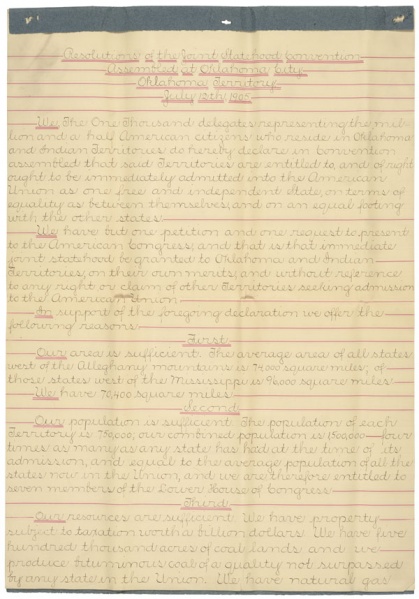 Resolutions of the Joint Statehood Convention
Assembled at Oklahoma City
Oklahoma Territory
July 12th 1905
We The One Thousand delegates representing the mil-
lion and a half American citizens who reside in Oklahoma
and Indian Territories do hereby declare in Convention
assembled that said Territories are entitled to, and of right
ought to be immediately admitted into the American
Union as one free and independent State, on terms of
equality as between themselves, and on an equal footing
with the other states.
We have but one petition and one request to present
to the American Congress; and that is that immediate
joint statehood be granted to Oklahoma and Indian
Territories, on their own merits, and without reference
to any right or claim of other Territories seeking admission
to the American Union
In support of the foregoing declaration we offer the
following reasons.
First
Our area is sufficient. The average area of all states
west of the Alleghany mountains is 74000 square miles; of
those states west of the Mississippi is 96000 square miles
We have 70,400 square miles
Second
Our population is sufficient The population of each
Territory is 750,000; our combined population is 1500,000 four
times as many as any state has had at the time of its
admission, and equal to the average population of all the
states now in the Union, and we are therefore entitled to
seven members of the Lower House of Congress
Third
Our resources are sufficient We have property
subject to taxation worth a billion dollars We have five
hundred thousand acres of coal lands and we
produce bituminous coal of a quality not surpassed
by any state in the Union. We have natural gas